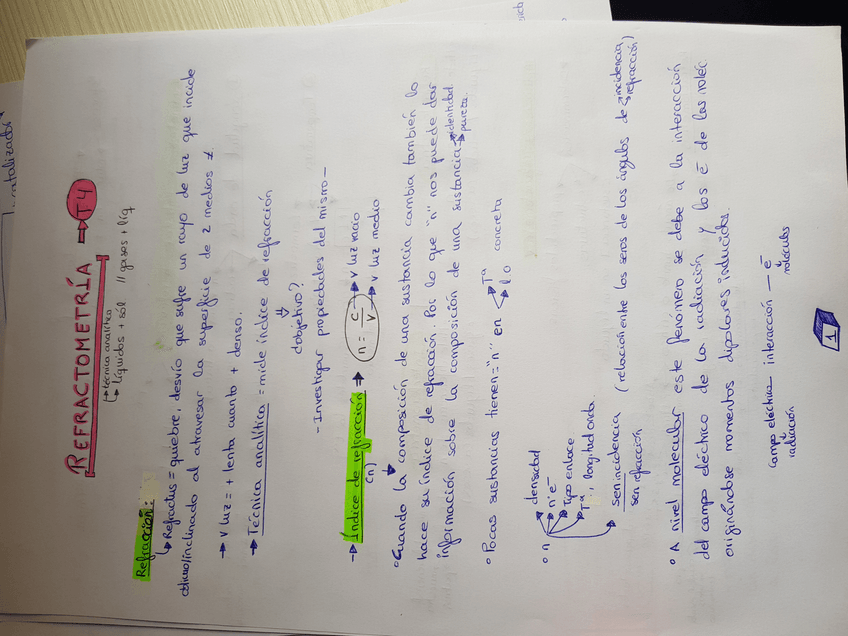 REFRACTOMETRÍA → T4
↳ técnica analítica
↳ líquidos + sól // gases + líq
Refracción:
↳ Refractus = quiebre, desvío que sufre un rayo de luz que incide
oblicuo/inclinado al atravesar la superficie de 2 medios ≠.
→ v luz = + lenta cuanto + denso.
→ Técnica analítica = mide índice de refracción
⇓
¿objetivo?
- Investigar propiedades del mismo -
→ Índice de refracción ⇒ n = c/v → v luz vacío
(n) → v luz medio
• Cuando la composición de una sustancia cambia también lo
hace su índice de refracción. Por lo que "n" nos puede dar
información sobre la composición de una sustancia → identidad
→ pureza
• Pocas sustancias tienen = "n" en → Tª
→ l o concreta
• n → densidad
→ nº e⁻
→ Tipo enlace
→ Tª, longitud onda
→ sen incidencia (relación entre los senos de los ángulos de → incidencia
sen refracción → refracción)
• A nivel molecular este fenómeno se debe a la interacción
del campo eléctrico de la radiación y los e⁻ de las moléc
originándose momentos dipolares inducidos.
campo eléctrico interacción — e⁻
radiación moléculas
1